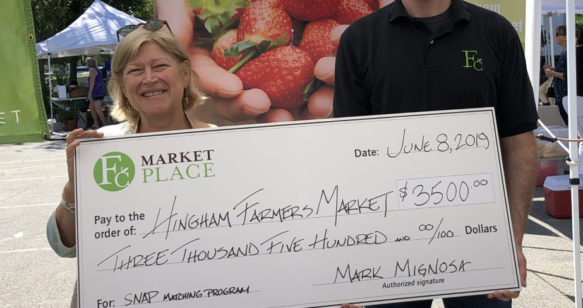 FC MARKET
PLACE
Date: JUNE 8, 2019
Pay to the
order of: HINGHAM FARMERS MARKET $3500.00
THREE THOUSAND FIVE HUNDRED AND 00/100 Dollars
MARK MIGNOSA
Authorized signature
For: SNAP MATCHING PROGRAM
FC